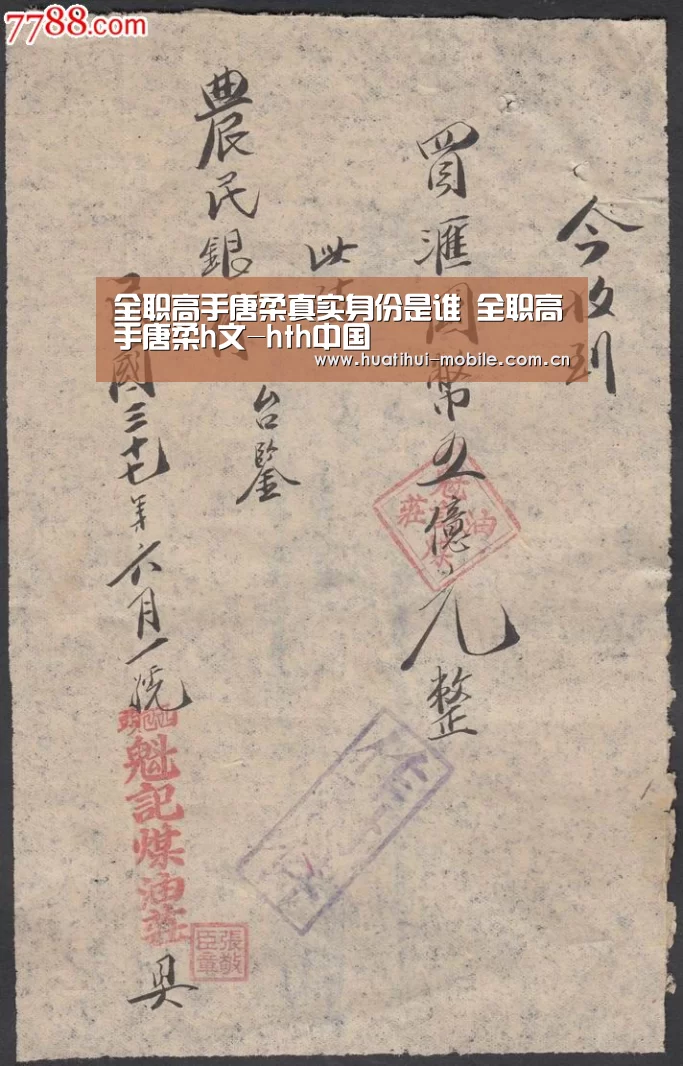 7788.com
今收到
買滙國幣五億元整
此
農民銀 台鑒
民國三十七年六月一號
魁記煤油莊 具
張敬臣章
油莊
全职高手唐柔真实身份是谁 全职高
手唐柔h文-hth中国
www.huatihui-mobile.com.cn